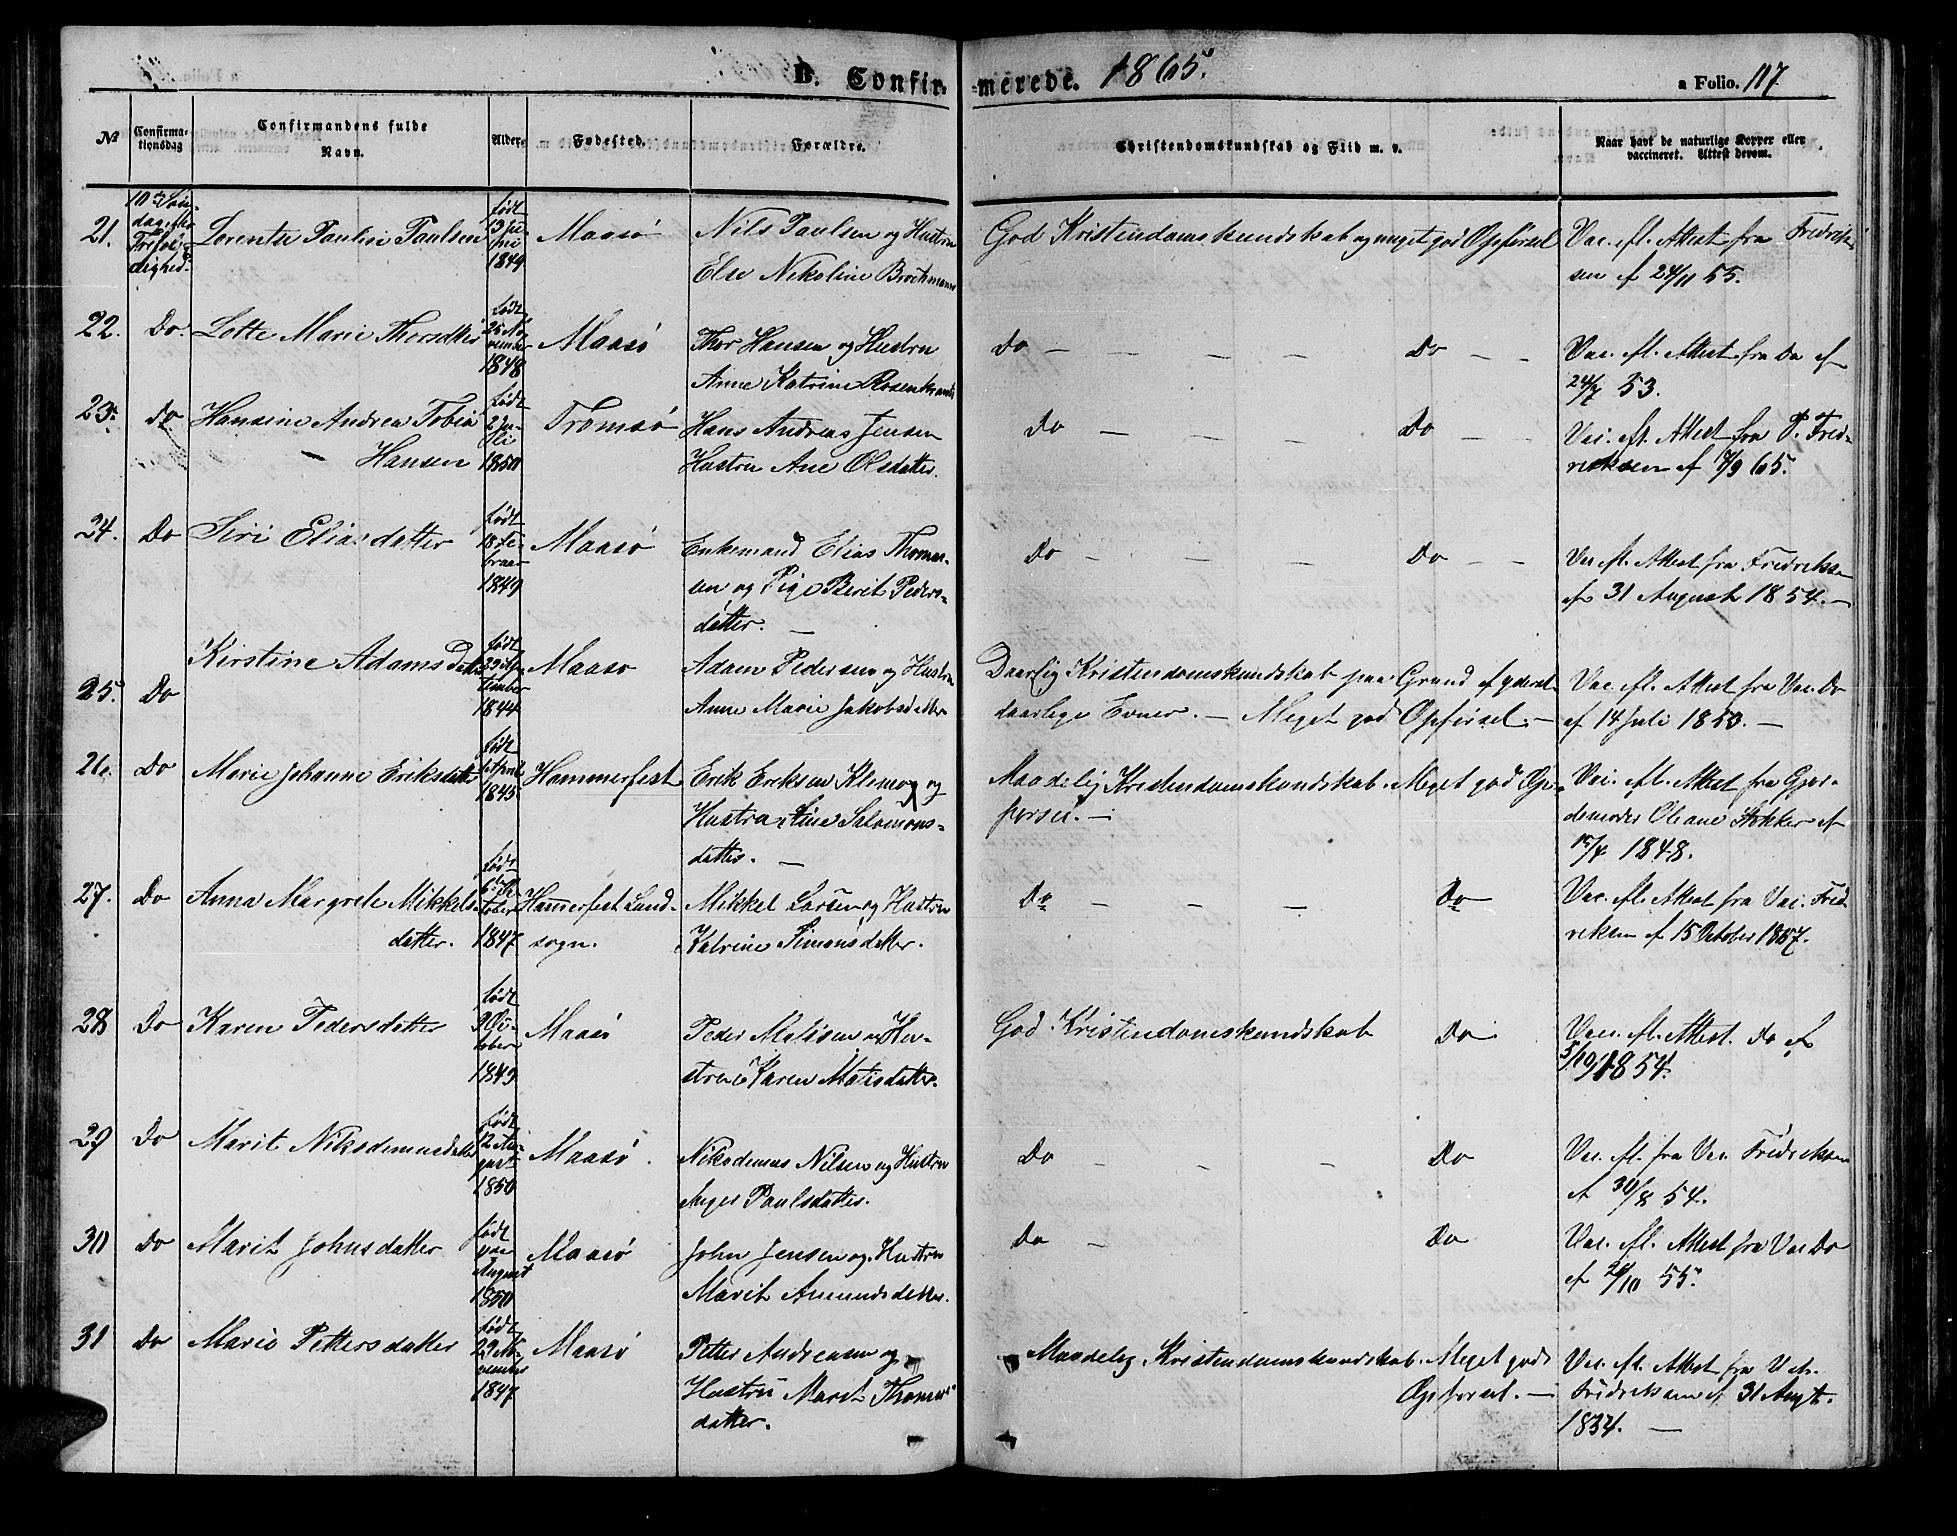 D. Confirmerede. 1865.
a Folio. 117
№
Confirmationsdag
Confirmandens fulde Navn.
Alder.
Fødested.
Forældre.
Christendomskundskab og Flid m. v.
Naar havt de naturlige Kopper eller vaccineret. Attest derom.
21. 10de Søndag efter Trefoldighed. Lorentse Pauline Paulsen født 13 Juni 1849 Maasø Nils Paulsen og Hustru
Else Nikoline Brochmann
God Kristendomskundskab og meget god Opførsel Vac. fl. Attest fra Fredriksen af 24/11 55.
22. Do. Lotte Marie Thorsdatter født 25 November 1848 Maasø Thor Hansen og Hustru
Anne Katrine Rosenkrands
Do — — — — Do — — Vac. fl. Attest fra Do af
24/7 53.
23. Do Hansine Andrea Tobia
Hansen født 2 Juli 1850 Tromsø Hans Andreas Jensen
Hustru Ane Olsdatter.
Do — — — — Do — — Vac. fl. Attest fra P. Fredreksen af 7/9 65.
24. Do Siri Eliasdatter født 18 Februar 1849 Maasø Enkemand Elias Thomassen og Pige Berit Pedersdatter. —
Do — — — Do — — Vac. fl. Attest fra Fredriksen
af 31 August 1854. —
25. Do Kirstine Adamsdatter født 29 September 1844 Maasø Adam Pedersen og Hustru
Anne Marie Jakobsdatter
Daarlig Kristendomskundskab paa Grund af yderst
daarlige Evner. — Meget god Opførsel. — Vac. fl. Attest fra Vac. Do
af 14 Juli 1853. —
26. Do Marie Johanne Eriksdatter født April 1845 Hammerfest Erik Eriksen Klemo og
Hustru Sine Salomonsdatter. —
Maadelig Kristendomskundskab. Meget god Opførsel. — Vac. fl. Attest fra Gjordemoder Oleane Stokker af
15/4 1848.
27. Do Anna Margrete Mikkelsdatter. født 6te October 1847 Hammerfest Landsogn. Mikkel Larsen og Hustru
Katrine Simonsdatter.
Do — — — Do Vac. fl. Attest fra Vac. Fredreksen af 15 October 1857.
28 Do Karen Pedersdatter født 9 October 1849 Maasø Peder Matisen og Hustru Karen Matisdatter.
God Kristendomskundskab Do Vac. fl. Attest. Do af
5/10 1854.
29 Do Marit Nikodemusdatter født 12 August 1850 Maasø. Nikodemus Nilsen og Hustru
Inger Paulsdatter.
Do — — — Do Vac. fl. fra Vac. Fredreksen
af 30/8 54.
30 Do Marit Johnsdatter født paa August 1850 Maasø John Jensen og Hustru
Marit Amundsdatter.
Do — Do Vac. fl. Attest fra Vac Do
af 24/10 55.
31 Do Marie Pettersdatter født 29 November 1847 Maasø Petter Andreasen og
Hustru Marit Thomasdatter.
Maadelig Kristendomskundskab. Meget gode
Opførsel. — Vac. fl. Attest fra Vac.
Fredreksen af 31 Augt.
1854. —